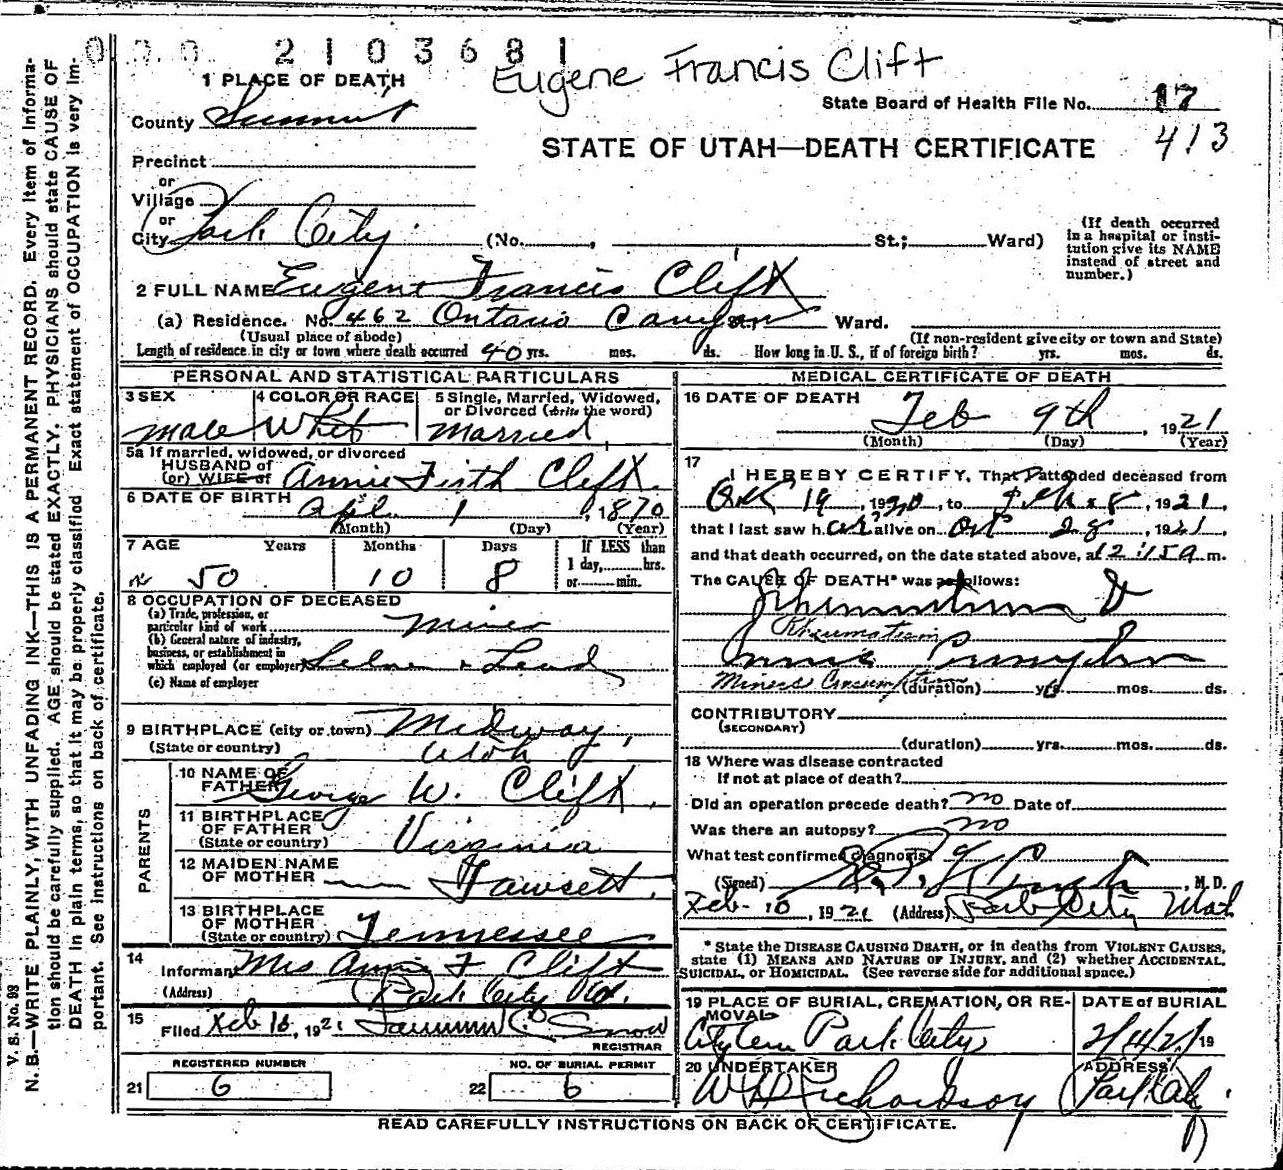 0002103681
Eugene Francis Clift
1 PLACE OF DEATH
State Board of Health File No. 17
County Summit
413
STATE OF UTAH—DEATH CERTIFICATE
Precinct
or
Village
or
City Park City (No. , St.; Ward)
(If death occurred
in a hospital or insti-
tution give its NAME
instead of street and
number.)
2 FULL NAME Eugene Francis Clift
(a) Residence. No. 462 Ontario Canyon St., Ward.
(Usual place of abode) (If non-resident give city or town and State)
Length of residence in city or town where death occurred 40 yrs. mos. ds. How long in U. S., if of foreign birth? yrs. mos. ds.
PERSONAL AND STATISTICAL PARTICULARS
3 SEX 4 COLOR OR RACE 5 Single, Married, Widowed,
or Divorced (write the word)
male White Married
5a If married, widowed, or divorced
HUSBAND of
(or) WIFE of Annie Firth Clift
6 DATE OF BIRTH
Apl. 1, 1870
(Month) (Day) (Year)
7 AGE Years Months Days If LESS than
1 day, hrs.
or min.
50 10 8
8 OCCUPATION OF DECEASED
(a) Trade, profession, or
particular kind of work Miner
(b) General nature of industry,
business, or establishment in
which employed (or employer) Silver & Lead
(c) Name of employer
9 BIRTHPLACE (city or town) Midway,
(State or country) Utah
PARENTS
10 NAME OF
FATHER George W. Clift.
11 BIRTHPLACE
OF FATHER
(State or country) Virginia
12 MAIDEN NAME
OF MOTHER Fawsett.
13 BIRTHPLACE
OF MOTHER
(State or country) Tennessee
14
Informant Mrs Annie F Clift
(Address) Park City Ut.
15
Filed Feb 10, 1921 Snow
REGISTRAR
REGISTERED NUMBER NO. OF BURIAL PERMIT
21 6 22 6
MEDICAL CERTIFICATE OF DEATH
16 DATE OF DEATH
Feb 9th, 1921
(Month) (Day) (Year)
17
I HEREBY CERTIFY, That I attended deceased from
Oct 19, 1920, to Feb. 8, 1921.
that I last saw h alive on 28, 1921
and that death occurred, on the date stated above, at 12:15 a m.
The CAUSE OF DEATH* was as follows:
Rheumatism &
Rheumatism
Miners Consumption
Miners Consumption
(duration) yrs. mos. ds.
CONTRIBUTORY
(SECONDARY)
(duration) yrs. mos. ds.
18 Where was disease contracted
If not at place of death?
Did an operation precede death? no Date of
Was there an autopsy? no
What test confirmed diagnosis?
(Signed) , M. D.
Feb- 10, 1921 (Address) Park City Utah
* State the DISEASE CAUSING DEATH, or in deaths from VIOLENT CAUSES,
state (1) MEANS AND NATURE OF INJURY, and (2) whether ACCIDENTAL,
SUICIDAL, or HOMICIDAL. (See reverse side for additional space.)
19 PLACE OF BURIAL, CREMATION, OR RE-
MOVAL
DATE of BURIAL
City Cem Park City 2/11/21 19
20 UNDERTAKER ADDRESS
W H Richardson Park City
READ CAREFULLY INSTRUCTIONS ON BACK OF CERTIFICATE.
V. S. No. 98
N. B.—WRITE PLAINLY, WITH UNFADING INK—THIS IS A PERMANENT RECORD. Every item of informa-
tion should be carefully supplied. AGE should be stated EXACTLY. PHYSICIANS should state CAUSE OF
DEATH in plain terms, so that it may be properly classified. Exact statement of OCCUPATION is very im-
portant. See instructions on back of certificate.